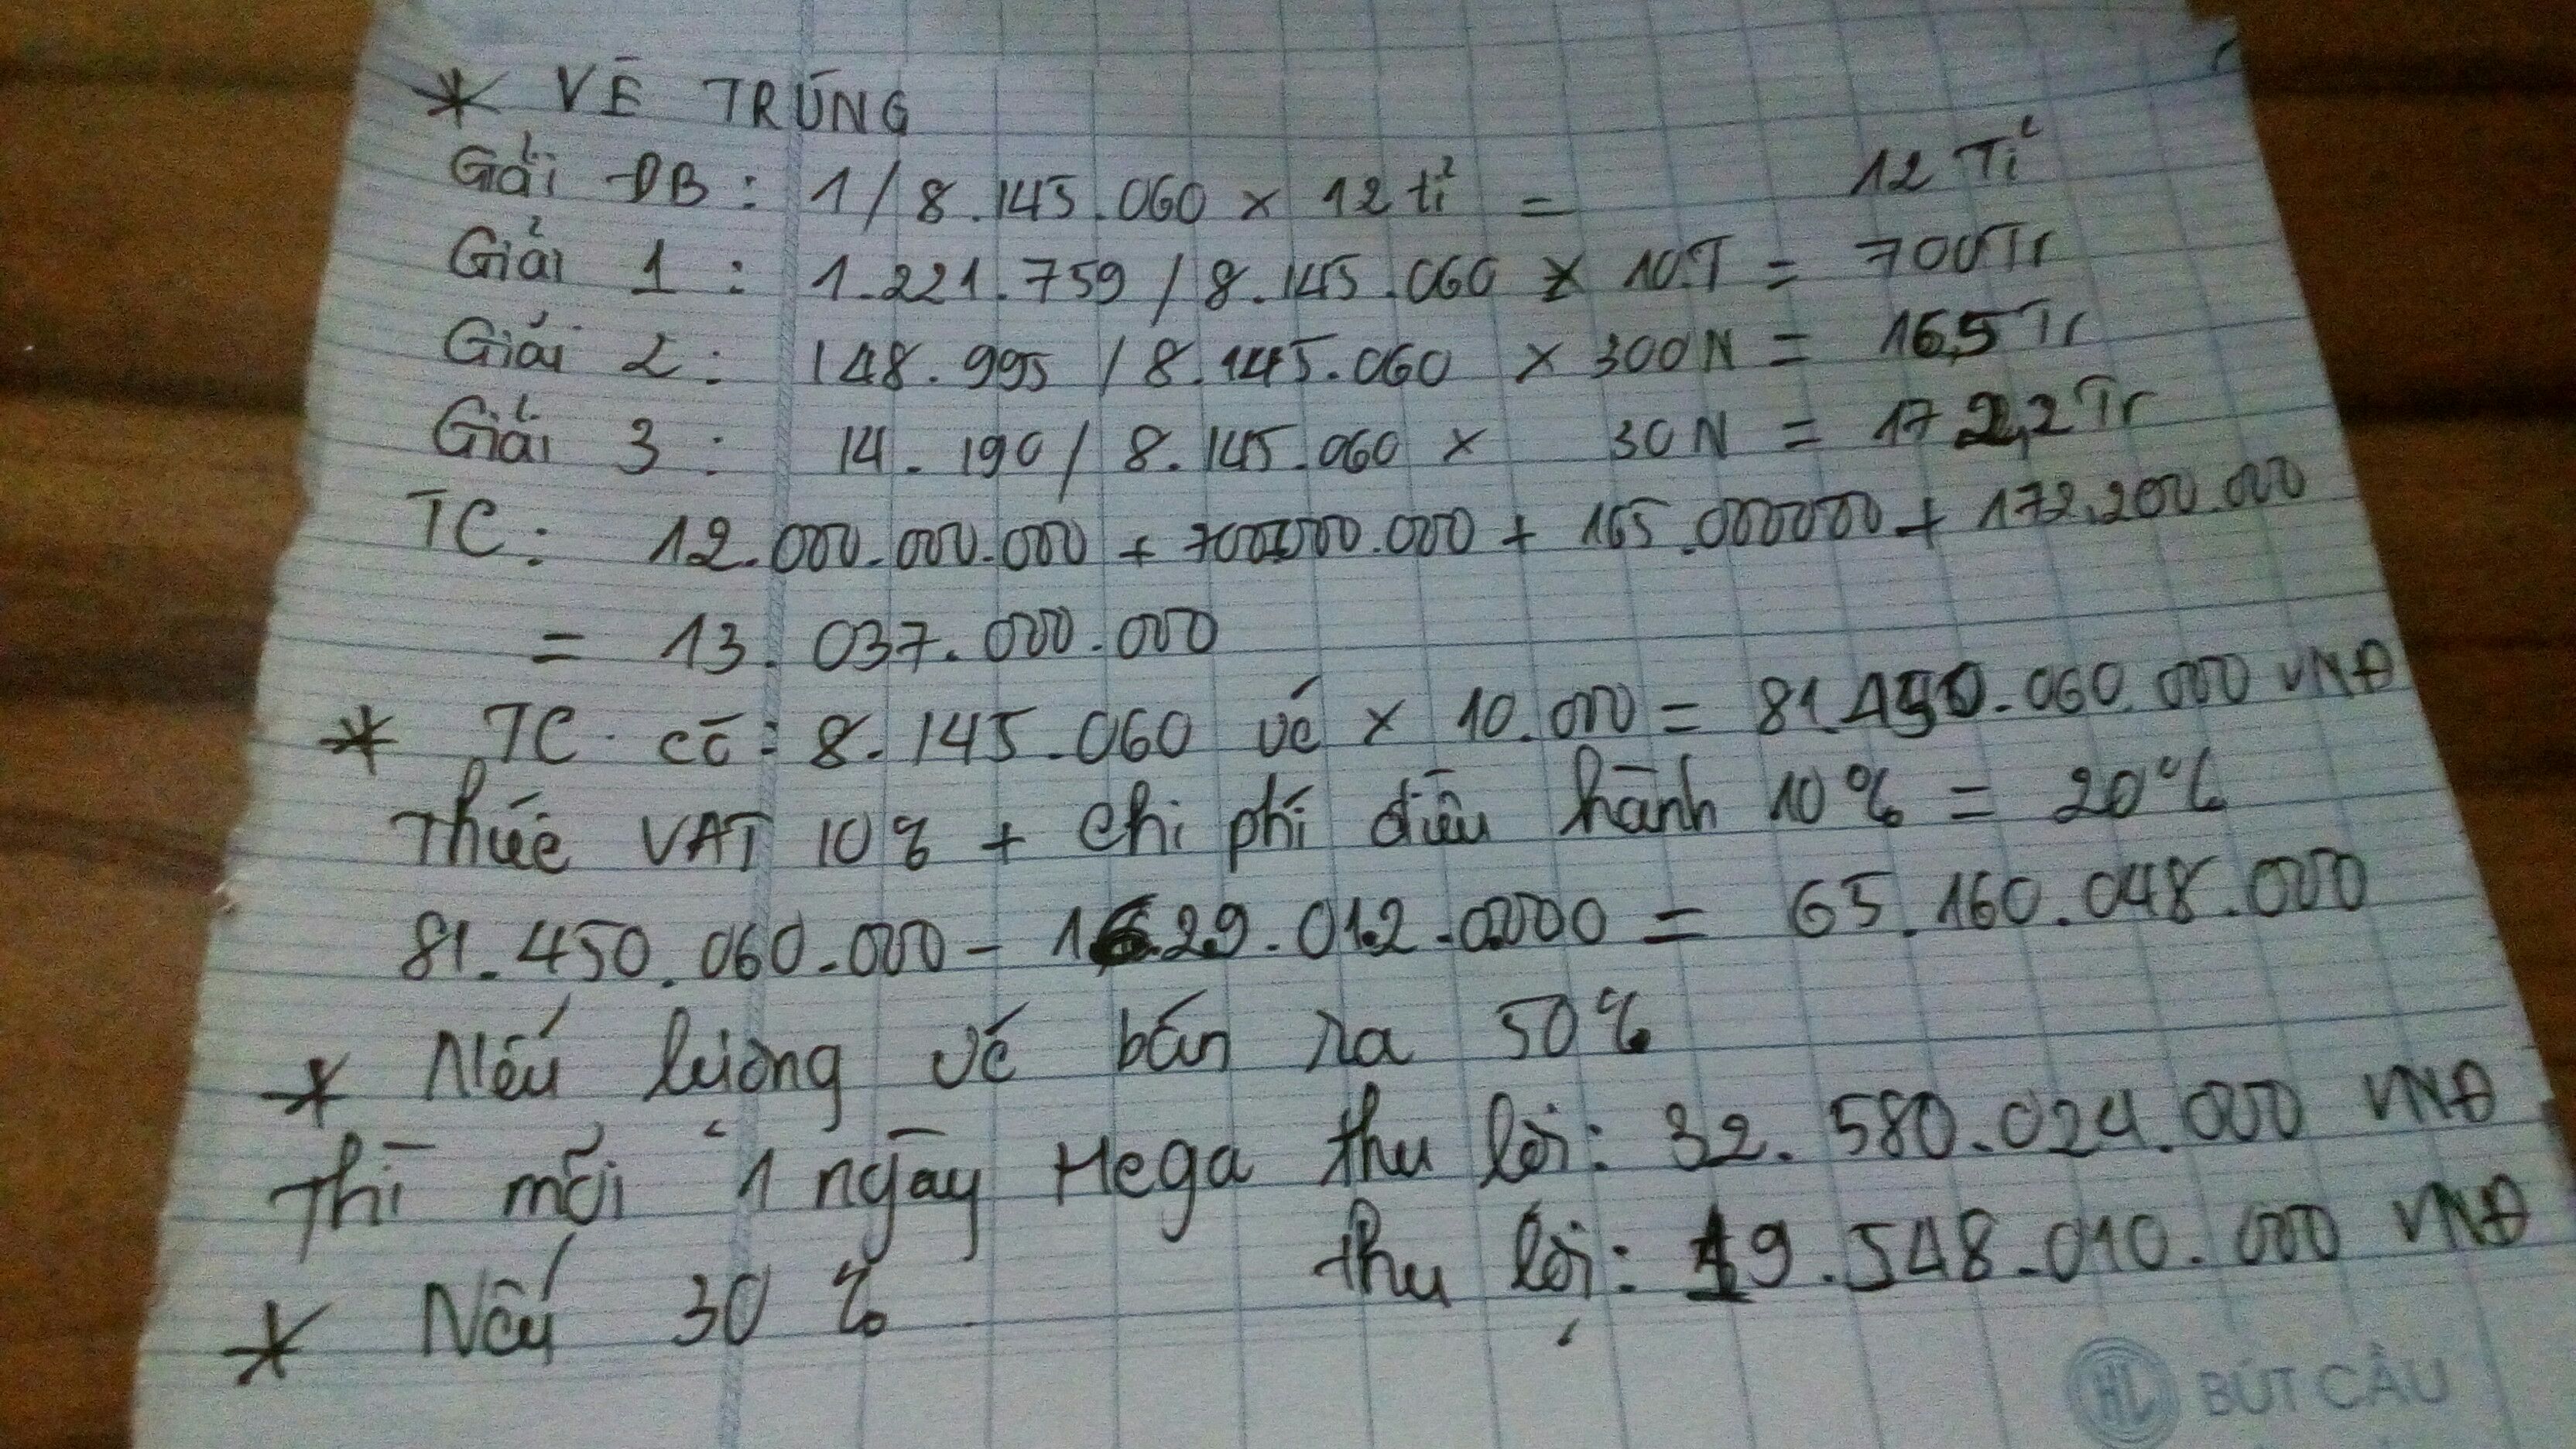 * VÉ TRÚNG
Giải ĐB : 1 / 8.145.060 x 12 tỉ = 12 Tỉ
Giải 1 : 1.221.759 / 8.145.060 x 10.T = 700Tr
Giải 2 : 148.995 / 8.145.060 x 300N = 165 Tr
Giải 3 : 14.190 / 8.145.060 x 30N = 172,2 Tr
TC : 12.000.000.000 + 700.000.000 + 165.000000 + 172.200.000
= 13.037.000.000
* TC có : 8.145.060 vé x 10.000 = 81.450.060.000 VNĐ
Thuế VAT 10% + chi phí điều hành 10% = 20%
81.450.060.000 - 1629.012.0000 = 65.160.048.000
* Nếu lượng vé bán ra 50%
Thì mỗi 1 ngày Mega thu lợi : 32.580.024.000 VNĐ
* Nếu 30% thu lợi : 19.548.010.000 VNĐ
BÚT CẦU